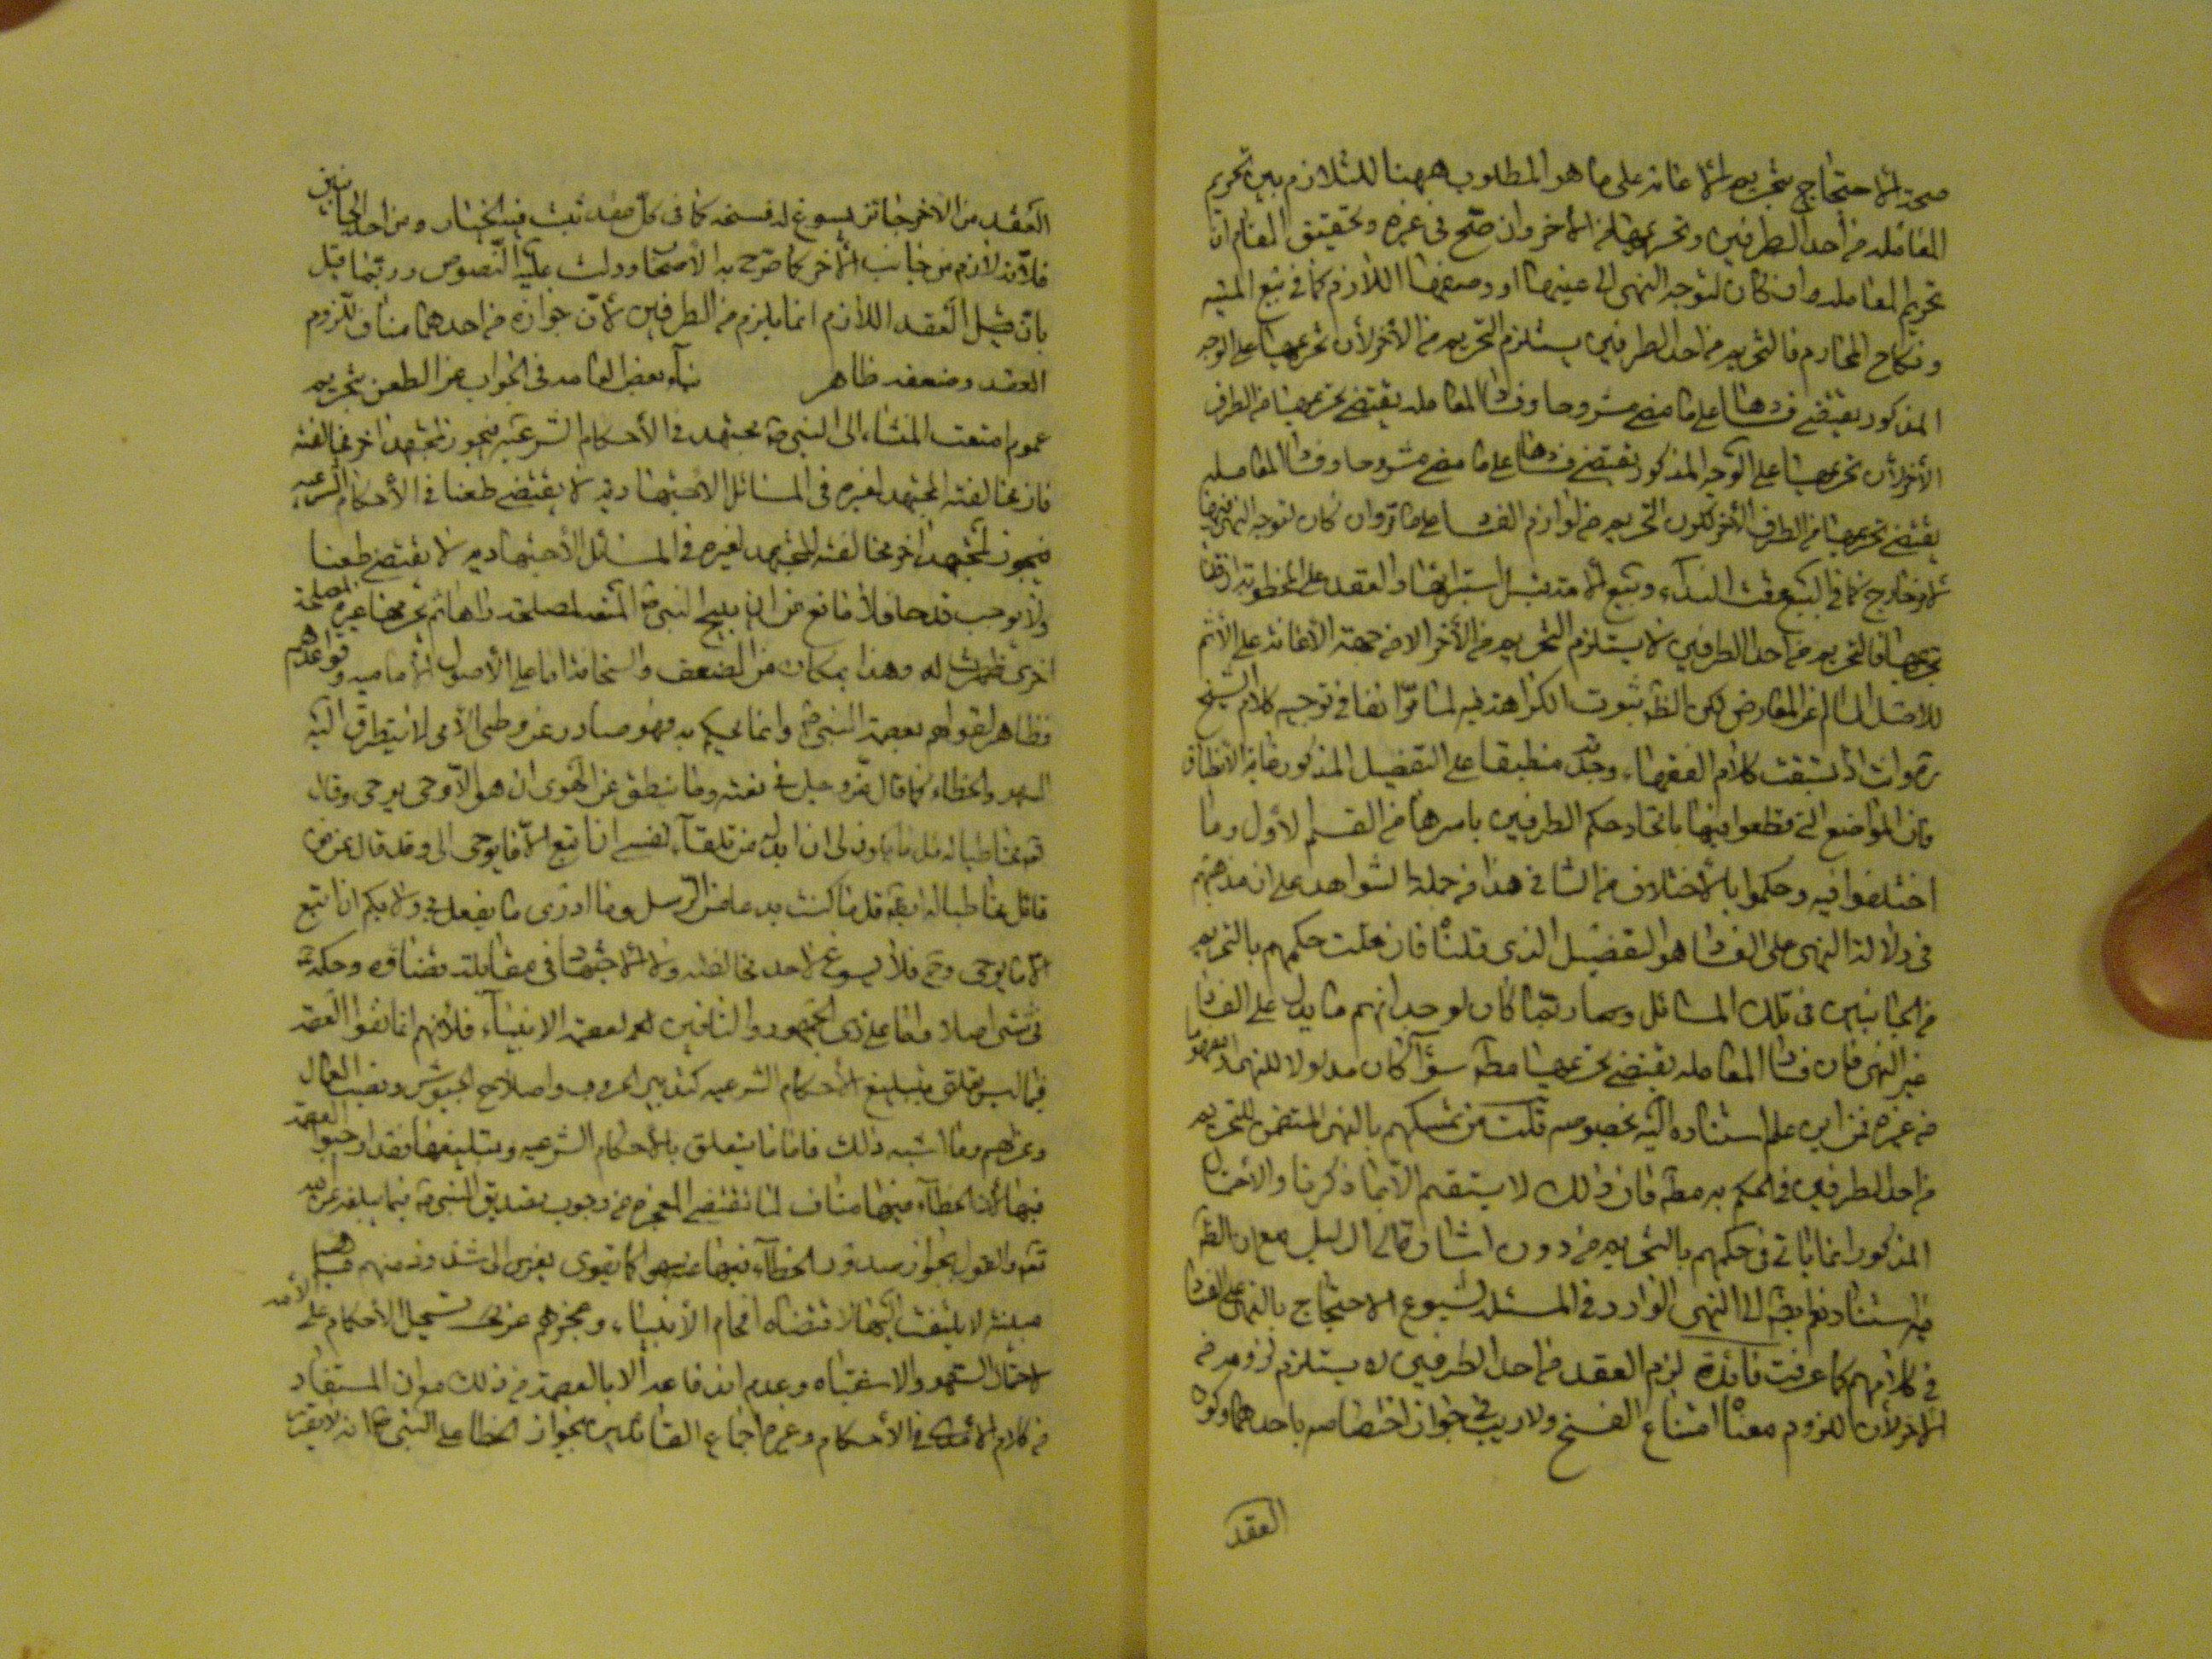 صحة الاحتجاج بتحريم الاعانة على ما هو المطلوب ههنا للتلازم بين تحريم
المعاملة من أحد الطرفين وتحريمها من الاخر وان صح في غيره وتحقيق المقام ان
تحريم المعاملة ان كان لتوجه النهى الى عينها او وصفها اللازم كما في بيع الميتة
ونكاح المحارم فالتحريم من احد الطرفين يستلزم التحريم من الآخر لأن تحريمها على الوجه
المذكور يقتضى فسادها على ما مضى مشروحا وفساد المعاملة يقتضى تحريمها من الطرف
الأخر لأن تحريمها على الوجه المذكور يقتضى فسادها على ما مضى مشروحا وفساد المعاملة
يقتضى تحريمها من الطرف الأخر لكون التحريم من لوازم الفساد على ما مر وان كان لتوجه النهى فيها
لأمر خارج كما في البيع وقت النداء وبيع الامة قبل استبرائها والعقد على المخطوبة
فالتحريم من احد الطرفين لا يستلزم التحريم من الأخر الا من جهة الاعانة على الاثم
للاصل السالم عن المعارض لكن الظ ثبوت الكراهة فيه لما مر انفا في توجيه كلام الشيخ
ره وانت اذا تتبعت كلام الفقهاء وجدته منطبقا على التفصيل المذكور غاية الانطباق
فان المواضع التى قطعوا فيها باتحاد حكم الطرفين باسرها من القسم الاول وما
اختلفوا فيه وحكموا بالاختلاف من الثانى هذا من جملة الشواهد على ان مذهبهم
في دلالة النهى على الفساد هو التفصيل الذى قلناه فان قلت حكمهم بالتحريم
من الجانبين في تلك المسائل ربما كان لوجدانهم ما يدل على الفساد
غير النهى فان فساد المعاملة يقتضى تحريمها مطلقا سواء كان مدلولا للنهى او
من غيره فمن اين علم استناده اليه بخصوصه قلت من تمسكهم بالنهى المتضمن للتحريم
من احد الطرفين في الحكم به مطلقا فان ذلك لا يستقيم الا بما ذكرنا والاحتمال
المذكور انما ياتى في حكمهم بالتحريم من دون اشارة الى الدليل مع ان الظ
فيه استنادهم ايضا الى النهى الوارد في المسئلة لشيوع الاحتجاج بالنهى على الفساد
في كلامهم كما عرفت فائدة لزوم العقد من احد الطرفين لا يستلزم لزومه من
الاخر لأن اللزوم معناه امتناع الفسخ ولا ريب في جواز اختصاصه باحدهما وكون
العقد
العقد من الآخر جائز يسوغ له فسخه كما في كل عقد ثبت فيه الخيار ومن احد الجانبين
لازم من جانب الأخر كما صرح به الأصحاب ودلت عليه النصوص وربما قيل
بان مثل العقد اللازم انما يلزم من الطرفين لأن جوازه من احدهما مناف للزوم
العقد وضعفه ظاهر بعض العامة في الجواب عن الطعن بتحريم
عمر متعة النساء الى النبى ص مجتهد في الأحكام الشرعية فيجوز لمجتهد اخر مخالفته
فان مخالفة المجتهد لغيره في المسائل الاجتهادية لا يقتضى طعنا في الأحكام الشرعية
فيجوز لمجتهد اخر مخالفته المجتهد لغيره في المسائل الأجتهادية لا يقتضى طعنا
ولا يوجب قدحا ولا مانع من ان يبيح النبى ص المتعة لمصلحة راها ثم يحرمها غيره لمصلحة
اخرى ظهرت له وهذا بمكان من الضعف والسخافة اما على الأصول الأمامية وقواعدهم
فظاهر لقولهم بعصمة النبى ص وانما يحكم به فهو صادر عن وحى الآهى لا يتطرق اليه
السهو والخطاء كما قال عز وجل في نعته وما ينطق عن الهوى ان هو الا وحى يوحى وقال
مخاطبا له قل ما يكون لى ان ابدله من تلقاء نفسى ان اتبع الا ما يوحى الى وقد قال عز من
قائل مخاطبا له ايضا قل ما كنت بدعا من الرسل وما ادرى ما يفعل بى ولا بكم ان اتبع
الا ما يوحى وح فلا يسوغ لاحد مخالفته ولا الاجتهاد في مقابلة قضائه وحكمه
في شىء اصلا واما على رأى الجمهور والنافين لعصمة الانبياء فلأنهم انما نفوا العصمة
فيما ليس يتعلق بتبليغ الأحكام الشرعية كتدبير الحروب واصلاح الجيوش ونصب العمال
وعزلهم وما اشبه ذلك فاما ما يتعلق بالأحكام الشرعية وتبليغها فقد اوجبوا العصمة
فيها لأن الخطاء فيها مناف لما تقتضى المعجزة من وجوب تصديق النبى ص فيما يبلغه عن الله
تعالى والقول بجواز صدور الخطاء فيها سهوا كما يعزى الى شذوذ منهم
لا يلتفت اليها لاقتضاه افحام الأنبياء وعجزهم عن تسجيل الأحكام على الأمة
لاحتمال السهو والاشتباه وعدم اندفاعه الا بالعصمة من ذلك مع ان المستفاد
من كلام الآمدى في الأحكام وغيره اجماع القائلين بجواز الخطا على النبى ص انه لا يقر